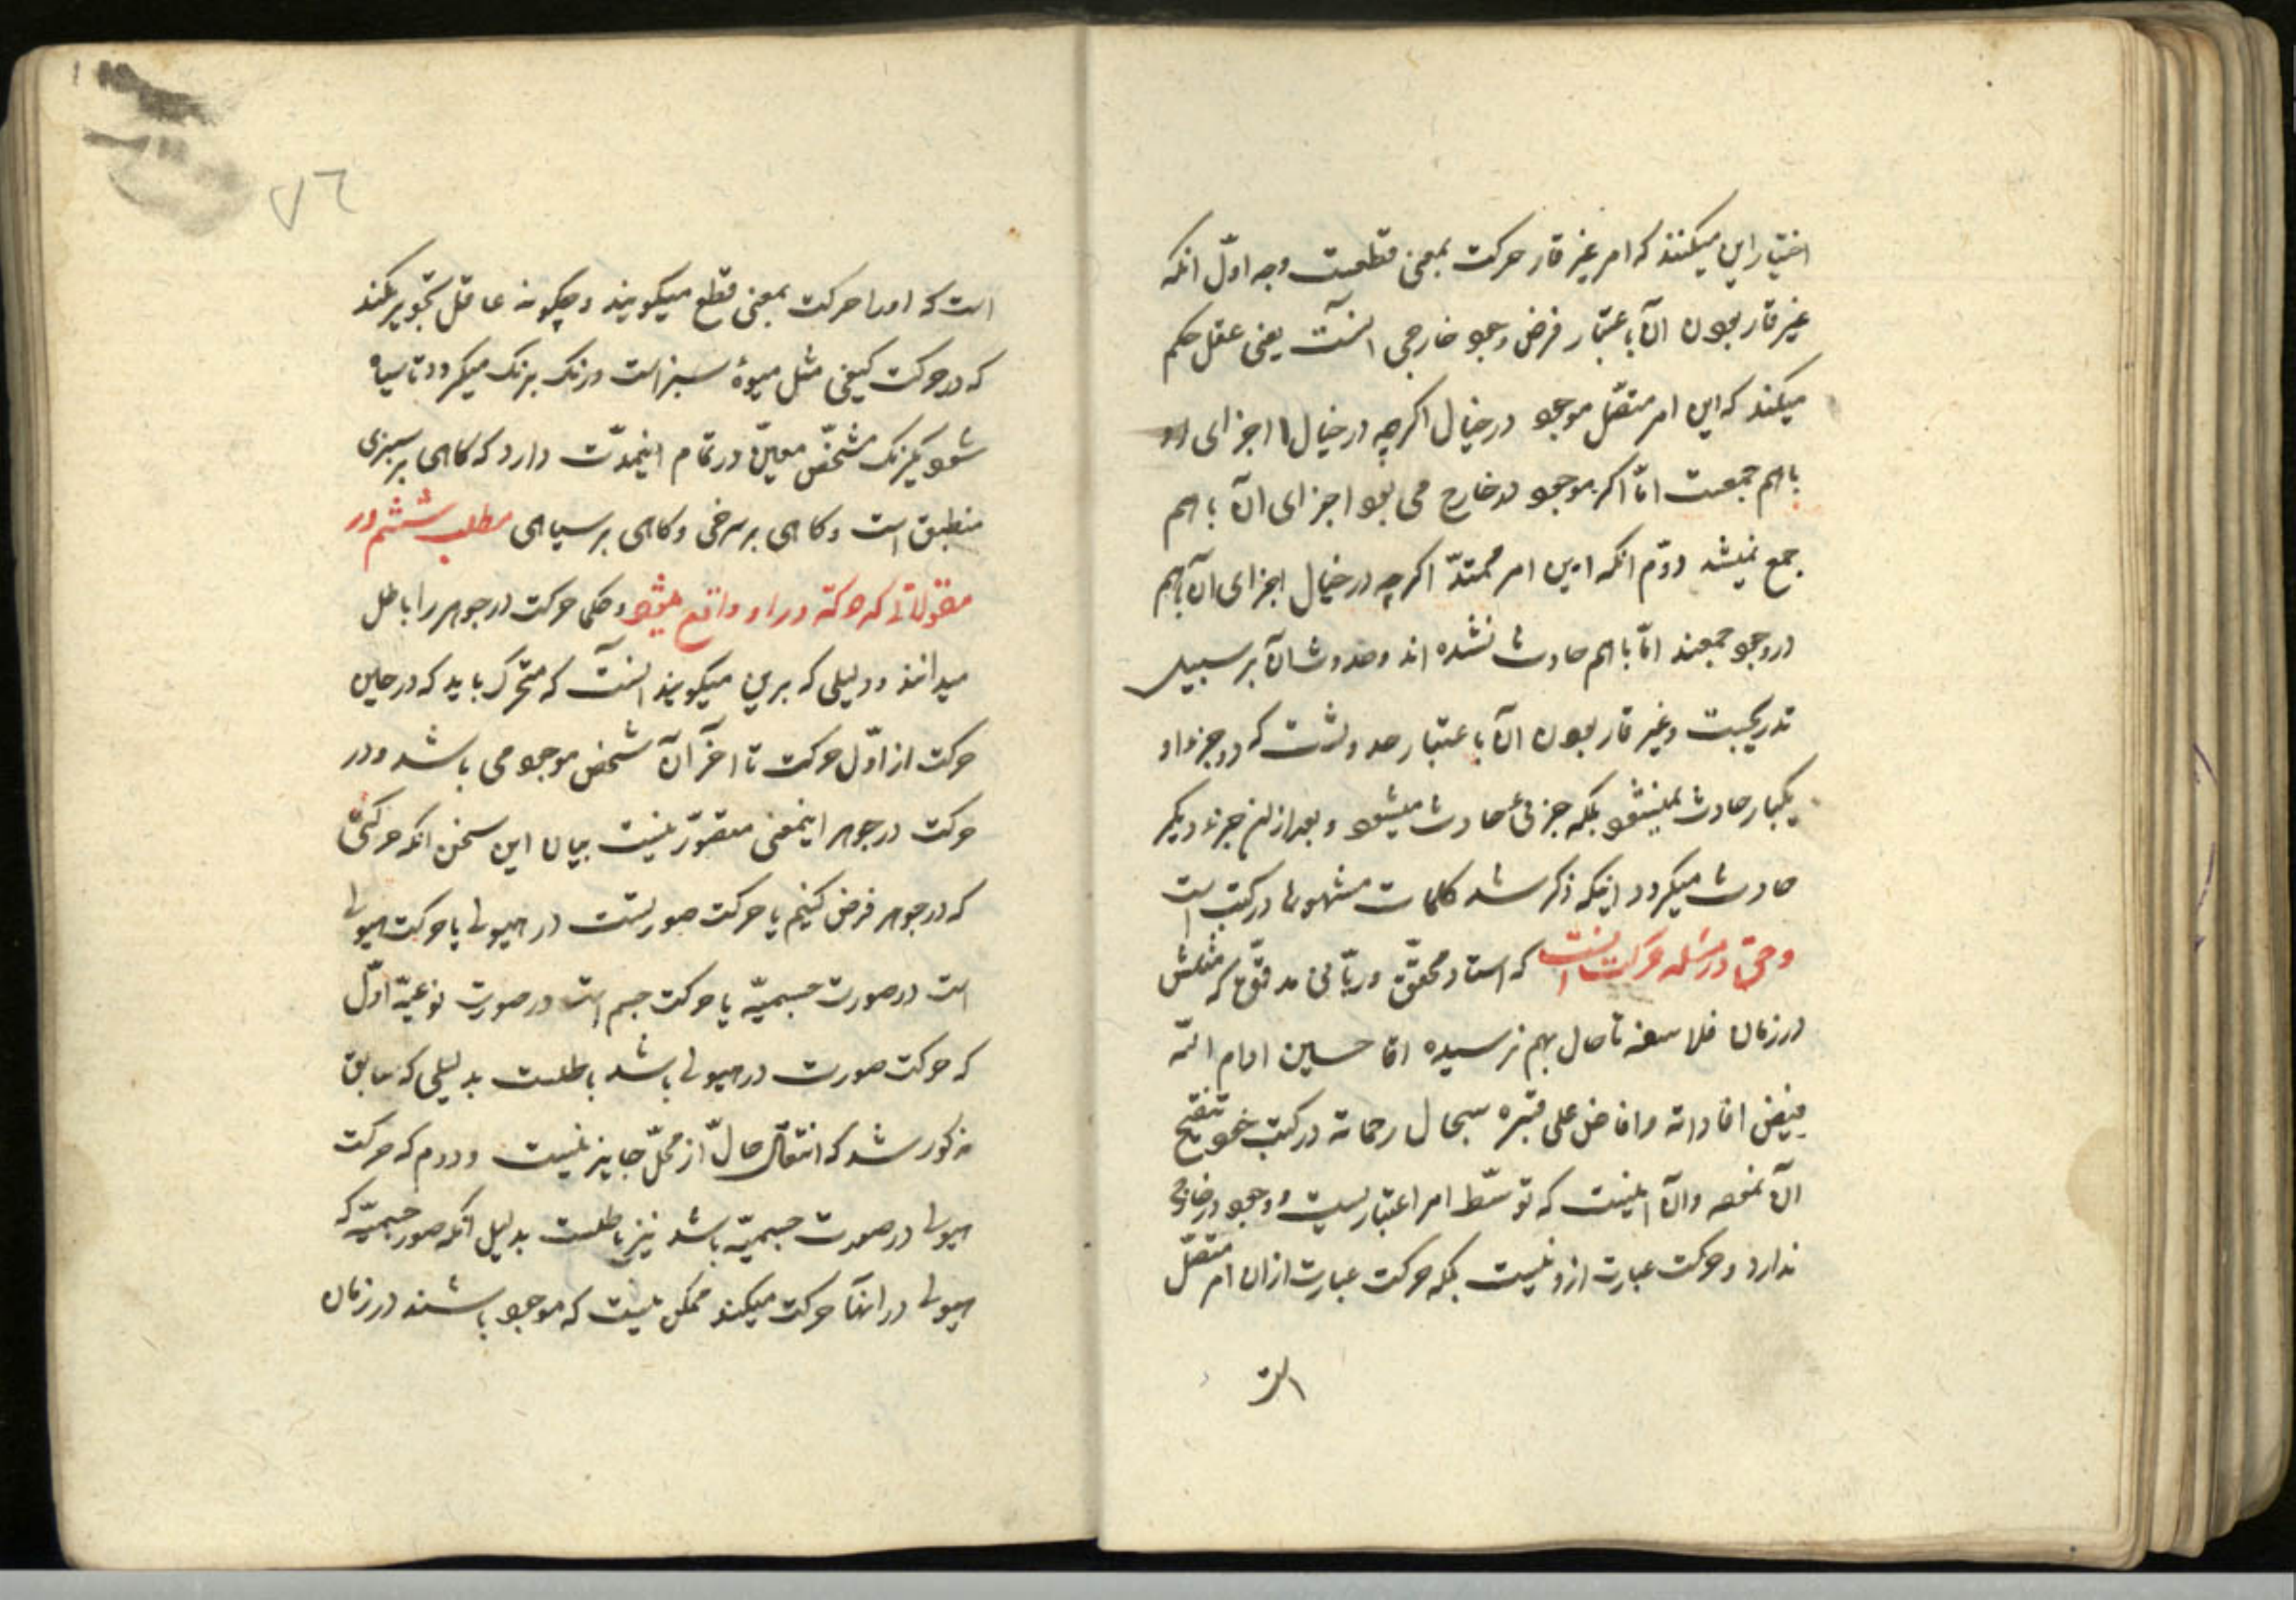 اختیار این میکنند که امر غیر قار حرکت بمعنی قطعست وجه اوّل انکه
غیر قار بودن آن باعتبار فرض وجود خارجی آنست یعنی عقل حکم
میکند که این امر متصّل موجود در خیال اکرچه در خیال اجزای او
باهم جمعست امّا اکر موجود در خارج می بود اجزای آن باهم
جمع نمیشد دوّم انکه این امر ممتدّ اکرچه در خیال اجزای آن باهم
در وجود جمعند امّا باهم حادث نشده اند و حدوث آن بر سبیل
تدریجست و غیر قار بودن آن باعتبار حدوثست که دو جزء او
یکبار حادث نمیشود بلکه جزئی حادث میشود و بعد از ان جزء دیکر
حادث میکردد اینکه ذکر شد کلمات مشهوره در کتب است
و حق در مسئله حرکت آنست که استاد محقّق و ربّانی مدقّق که مثلش
در زمان فلاسفه تا حال بهم نرسیده اقا حسین امام ائمّه
بفیض افاداته وافاض علی قبره سجال رحماته در کتب خود تنقیح
آن نموده و آن اینست که توسّط امر اعتباریست و وجود در خارج
ندارد و حرکت عبارت ازو نیست بلکه حرکت عبارت از ان امر متصّل
است
٧٦
است که او را حرکت بمعنی قطع میکویند و چکونه عاقل تجویز میکند
که در حرکت کیفی مثل میوهٔ سبز است و رنک برنک میکردد تا سیاه
شود یکرنک مشخّص معیّن در تمام اینمدّت دارد که کاهی بر سبزی
منطبق است و کاهی بر سرخی و کاهی بر سیاهی مطلب ششم در
مقولاتی که حرکة در او واقع میشود و حکما حرکت در جوهر را باطل
میدانند و دلیلی که برین میکویند آنست که متحرّک باید که در حین
حرکت از اوّل حرکت تا آخر آن شخص موجود می باشد و در
حرکت در جوهر اینمعنی متصوّر نیست بیان این سخن انکه حرکتی
که در جوهر فرض کنیم یا حرکت صورتست در هیولی یا حرکت هیولی
است در صورت جسمیّه یا حرکت جسم است در صورت نوعیّه اوّل
که حرکت صورت در هیولی باشد باطلست بدلیلی که سابق
مذکور شد که انتقال حالّ از محلّ جایز نیست و دوم که حرکت
هیولی در صورت جسمیّه باشد نیز باطلست بدلیل انکه صور جسمیّه که
هیولی در انها حرکت میکند ممکن نیست که موجود باشند در زمان